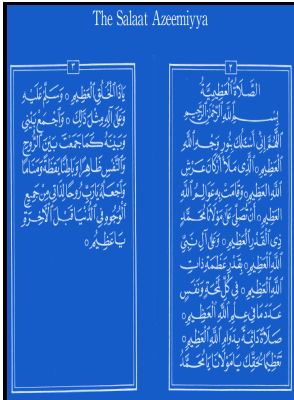 The Salaat Azeemiyya
٢
الصَّلَاةُ الْعَظِيمِيَّةُ
بِسْمِ اللَّهِ الرَّحْمَنِ الرَّحِيمِ
اللَّهُمَّ إِنِّي أَسْأَلُكَ بِنُورِ وَجْهِ اللَّهِ
الْعَظِيمِ ۞ الَّذِي مَلَأَ أَرْكَانَ عَرْشِ
اللَّهِ الْعَظِيمِ ۞ وَقَامَتْ بِهِ عَوَالِمُ اللَّهِ
الْعَظِيمِ ۞ أَنْ تُصَلِّيَ عَلَى مَوْلَانَا مُحَمَّدٍ
ذِي الْقَدْرِ الْعَظِيمِ ۞ وَعَلَى آلِ نَبِيِّ
اللَّهِ الْعَظِيمِ ۞ بِقَدْرِ عَظَمَةِ ذَاتِ
اللَّهِ الْعَظِيمِ ۞ فِي كُلِّ لَمْحَةٍ وَنَفَسٍ
عَدَدَ مَا فِي عِلْمِ اللَّهِ الْعَظِيمِ ۞
صَلَاةً دَائِمَةً بِدَوَامِ اللَّهِ الْعَظِيمِ ۞
تَعْظِيمًا لِحَقِّكَ يَا مَوْلَانَا يَا مُحَمَّدُ
٣
يَا ذَا الْخُلُقِ الْعَظِيمِ ۞ وَسَلِّمْ عَلَيْهِ
وَعَلَى آلِهِ مِثْلَ ذَلِكَ ۞ وَاجْمَعْ بَيْنِي
وَبَيْنَهُ كَمَا جَمَعْتَ بَيْنَ الرُّوحِ
وَالنَّفْسِ ظَاهِرًا وَبَاطِنًا يَقَظَةً وَمَنَامًا
وَاجْعَلْهُ يَا رَبِّ رُوحًا لِذَاتِي مِنْ جَمِيعِ
الْوُجُوهِ فِي الدُّنْيَا قَبْلَ الْآخِرَةِ
يَا عَظِيمُ ۞